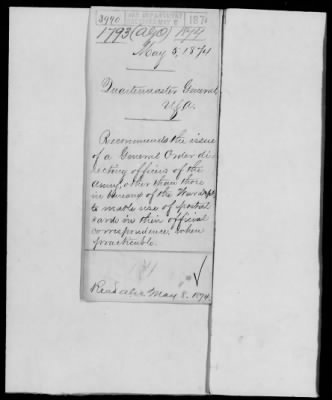 3990 1874
1793 (AGO) 1874
May 5, 1874
Quartermaster General
U.S.A.
Recommends the issue
of a General Order di-
recting officers of the
Army, other than those
in bureaus of the War Dept,
to make use of postal
cards in their official
correspondence, when
practicable.
May 8, 1874